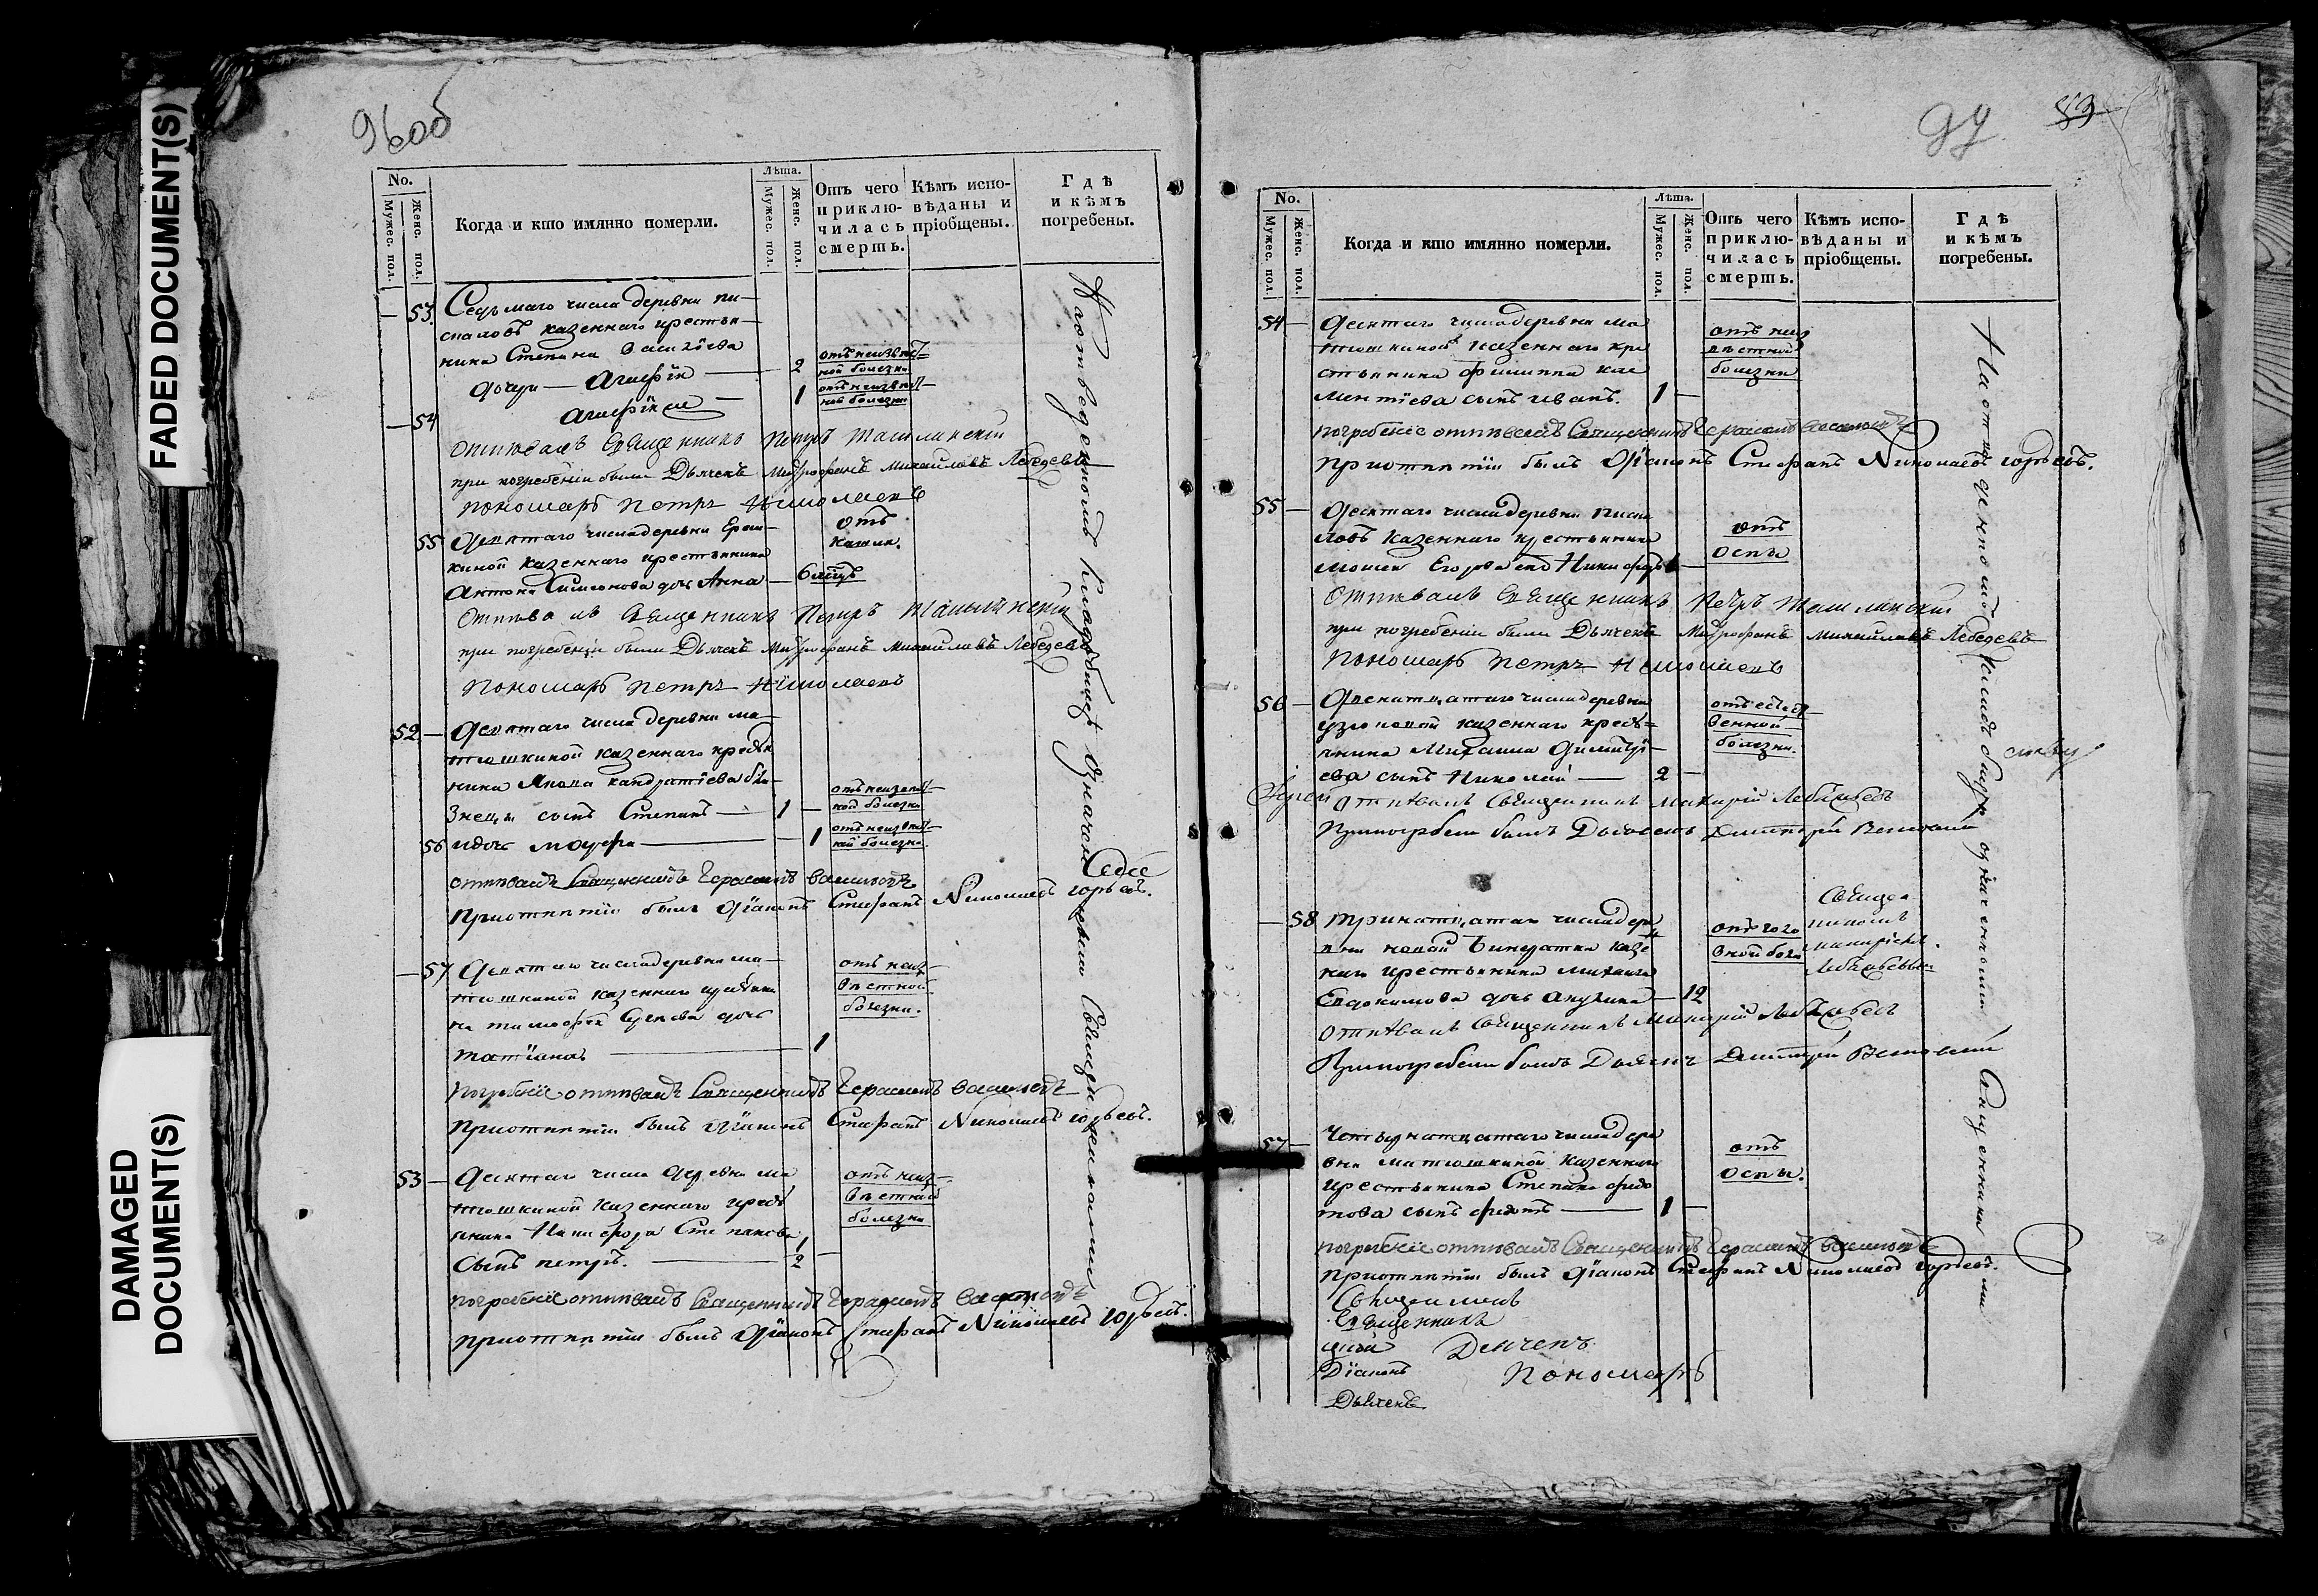 FADED DOCUMENT(S)
DAMAGED DOCUMENT(S)
96об
No.
Мужес. пол.
Женс. пол.
Когда и кто имянно померли.
Лѣта.
Мужес. пол.
Женс. пол.
Отъ чего приклю-
чилась
смерть.
Кѣмъ испо-
вѣданы и
пріобщены.
Гдѣ
и кѣмъ
погребены.
— 53. Седьмаго числа деревни пи-
скаловъ казеннаго крестья-
нина Степана Василіева 2 отъ неизвѣст=
ной болезни
дочери — Агафія — 1 отъ неизвѣст-
ной болезни
— 54 Агафія
отпѣвалъ Священникъ Петръ Ташлинскій
при погребеніи были Дьячекъ Митрофанъ Михайловъ Лебедевъ
пономарь Петръ Николаевъ
55 Девятаго числа деревни Ерем-
киной казеннаго крестьянина
Антона Симеонова дочь Анна — 6 мѣсцъ
отъ
кашля.
Отпѣвалъ Священникъ Петръ Ташлинскій
при погребеніи были Дьячекъ Митрофанъ Михайловъ Лебедевъ
Пономарь Петръ Николаевъ
52 — Девятаго числа деревни ма-
тюшкиной казеннаго крестья
нина Якова кандратіева бли-
знецы сынъ Степанъ — 1 — отъ неизвѣст-
ной болезни
56 и дочь — 1 отъ неизвѣст-
ной болезни.
отпѣвалъ Священникъ Герасимъ Васильевъ
при отпѣтіи былъ Діаконъ Стефанъ Николаевъ юрьевъ.
— 57 Девятаго числа деревни ма-
тюшкиной казеннаго крестьяни
на тимофея Сергѣева дочь
татіана — 1
отъ неиз-
вѣстной
болезни.
погребеніе отпѣвалъ Священникъ Герасимъ Васильевъ
при отпѣтіи былъ Діаконъ Стефанъ Николаевъ юрьевъ.
53 — Десятаго числа деревни ма
тюшкиной казеннаго кресть
янина Никифора Степанова
сынъ петръ. — 2 —
отъ неиз-
вѣстной
болезни
погребеніе отпѣвалъ Священникъ Герасимъ Васильевъ
при отпѣтіи былъ Діаконъ Стефанъ Николаевъ юрьевъ.
На отведенномъ кладбищѣ означенными Священниками
97 53
No.
Мужес. пол.
Женс. пол.
Когда и кто имянно померли.
Лѣта.
Мужес. пол.
Женс. пол.
Отъ чего
приклю-
чилась
смерть.
Кѣмъ испо-
вѣданы и
пріобщены.
Гдѣ
и кѣмъ
погребены.
54 — Десятаго числа деревни ма
тюшкиной казеннаго кре
стьянина филиппа кле
ментіева сынъ иванъ. 1 —
отъ неиз
вѣстной
болезни
погребеніе отпѣвалъ Священникъ Герасимъ Васильевъ
при отпѣтіи былъ Діаконъ Стефанъ Николаевъ юрьевъ.
55 — Десятаго числа деревни писка
ловъ казеннаго крестьянина
Егорова сынъ Никифоръ 1 —
отъ
оспы
Отпѣвалъ Священникъ Петръ Ташлинскій
при погребеніи были Дьячекъ Митрофанъ Михайловъ Лебедевъ
Пономарь Петръ Николаевъ
56 — Двенатцатаго числа деревни
казеннаго кресть=
янина Михаила Димитрі-
ева сынъ Николай — 2 —
отъ естест-
венной
болезни.
отпѣвалъ Священникъ Макарій
при погребеніи былъ Дьячекъ Дмитрій
— 58 тринатцатаго числа дере
вни новой бинаратки казе
наго крестьянина михаила
Евдокимова дочь акулина — 12
Священ
никомъ
макаріемъ
отпѣвалъ Священникъ Макарій
При погребеніи былъ Дьячекъ Дмитрій
57 — Четырнатцатаго числа дере
вни матюшкиной казеннаго
крестьянина Степана федо
това сынъ федотъ — 1 —
отъ
оспы.
погребеніе отпѣвалъ Священникъ Герасимъ Васильевъ
при отпѣтіи былъ Діаконъ Стефанъ Николаевъ юрьевъ.
Священникъ
Дьячекъ
Діаконъ Пономарь
Дьячекъ
На отведенномъ кладбищѣ означенными Священниками